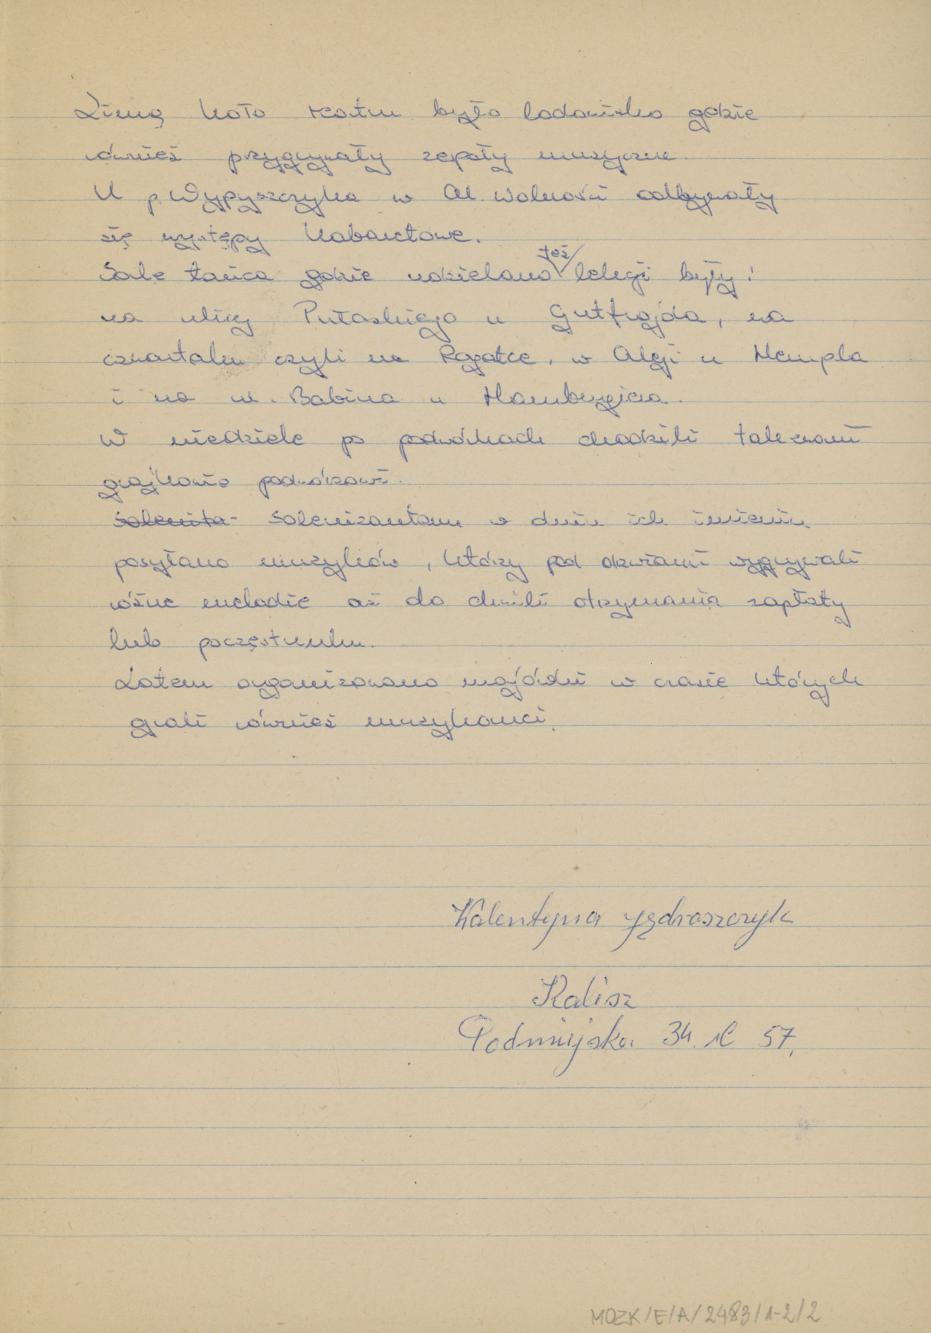 Zimą koło teatru było lodowisko gdzie
również przygrywały zespoły muzyczne.
U p. Wypyszczyka w Al. Wolności odbywały
się występy kabaretowe.
Sale tańca gdzie udzielano też lekcji były:
na ulicy Pułaskiego u Gutfrajda, na
czwartaku czyli na Rogatce, w Alei u Hempla
i na ul. Babina u Hamburgiera.
W niedziele po podwórkach chodzili tak zwani
grajkowie podwórzowi.
solenita- Solenizantom w dniu ich imienin
posyłano muzyków, którzy pod oknami wygrywali
różne melodie aż do chwili otrzymania zapłaty
lub poczęstunku.
Latem organizowano majówki w czasie których
grali również muzykanci.
Walentyna Jędraszczyk
Kalisz
Podmiejska 34 57.
MOZK/E/A/2483/1-2/2